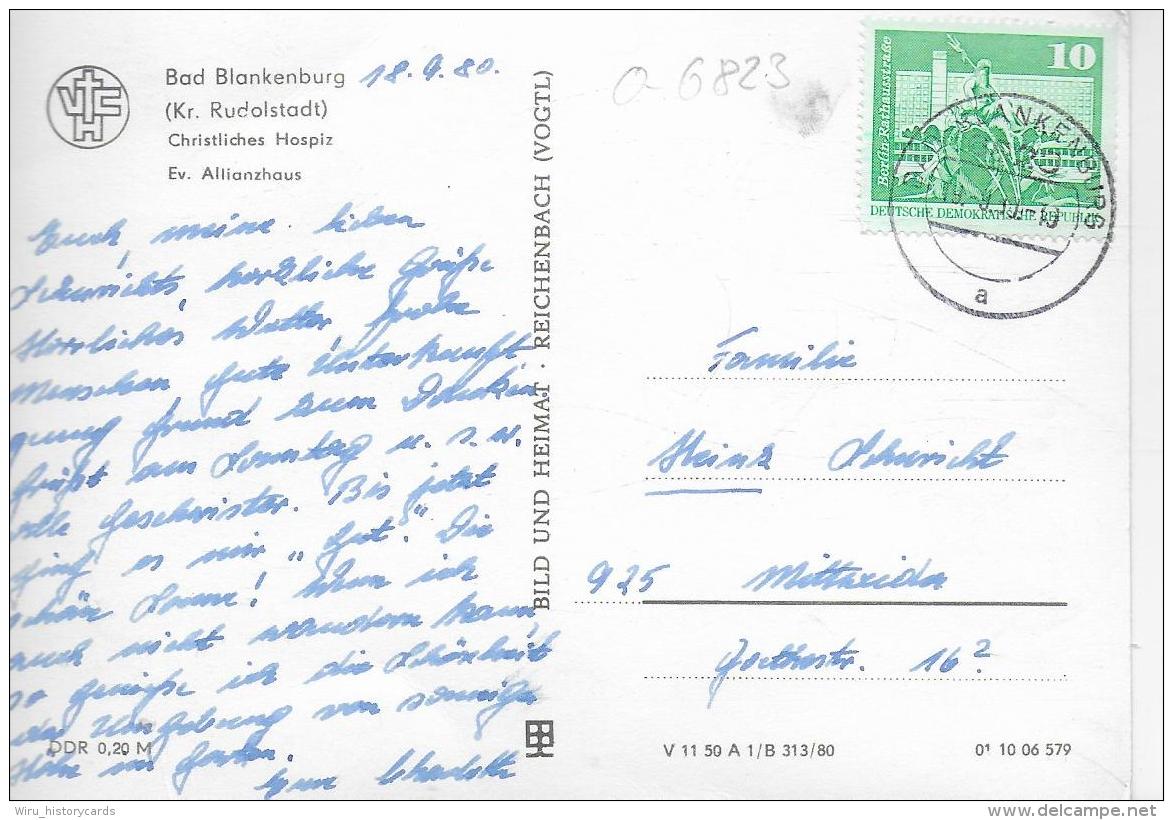 VCH
Bad Blankenburg 18.9.80.
(Kr. Rudolstadt)
Christliches Hospiz
Ev. Allianzhaus
Euch, meine lieben
Schurichts, herzliche Grüße
Herrliches Wetter frohe
Menschen gute Unterkunft
Grund zum Danken
am Sonntag u. s. w.
Geschwister. Bis jetzt
ging es mir „gut". Die
schöne Sonne! Wenn ich
auch nicht wandern kann,
so genieße ich die Schönheit
der Umgebung von sonniger
Höhe im Garten.
Eure Charlotte
DDR 0,20 M
BILD UND HEIMAT · REICHENBACH (VOGTL)
a 6823
10
Berlin-Rathausstraße
DEUTSCHE DEMOKRATISCHE REPUBLIK
BLANKENBURG
a
Familie
Heinz Schuricht
925 Mittweida
Goethestr. 16²
V 11 50 A 1/B 313/80
01 10 06 579
Wiru_historycards
www.delcampe.net